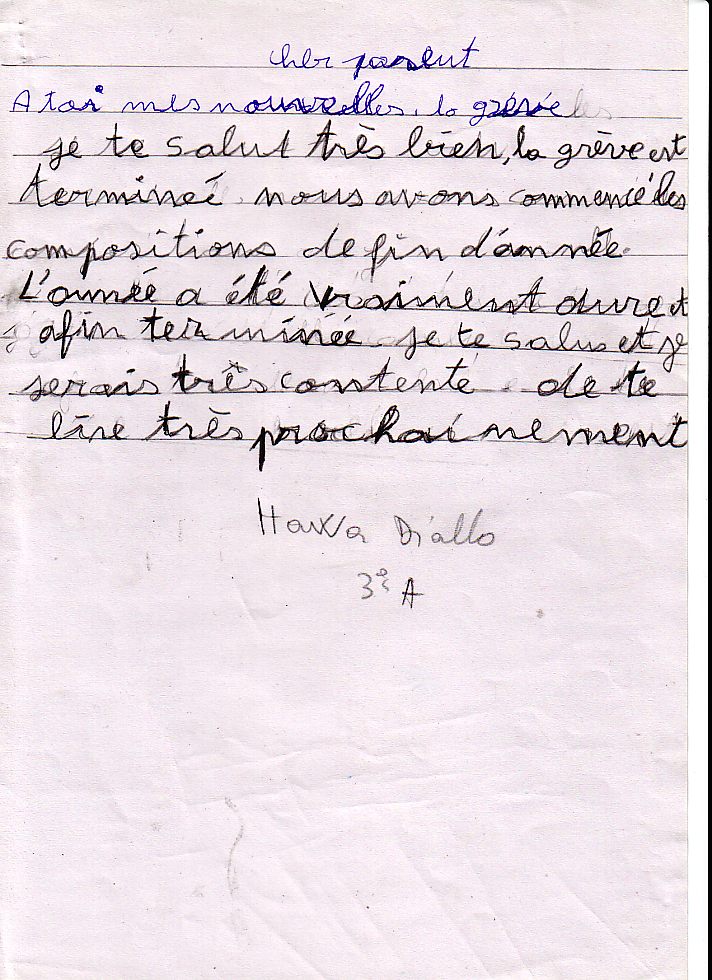 cher parent
A toi mes nouvelles, la grève les
je te salut très bien, la grève est
termineé nous avons commencé les
compositions de fin d'année.
L'année a été vraiment dure et
afin terminée je te salue et je
serais très contente de te
lire très prochainement
Hawa Diallo
3è A